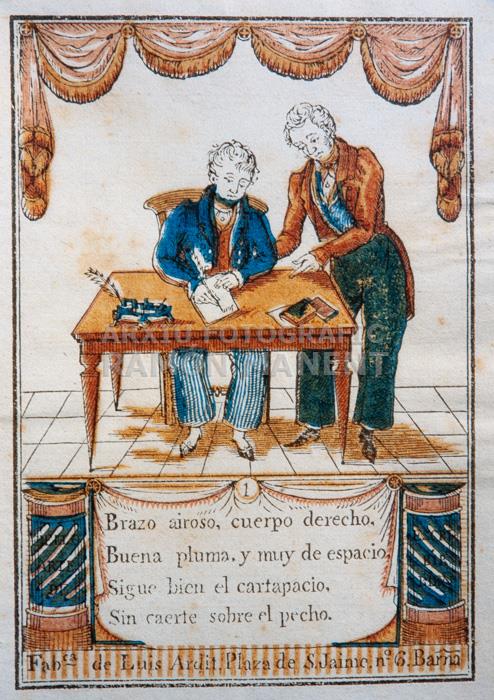 ARXIU FOTOGRAFIC
RAMON MANENT
1
Brazo airoso, cuerpo derecho,
Buena pluma, y muy de espacio
Sigue bien el cartapacio,
Sin caerte sobre el pecho.
Fab.ca de Luis Ardit, Plaza de S. Jaime, n.º 6, Barña